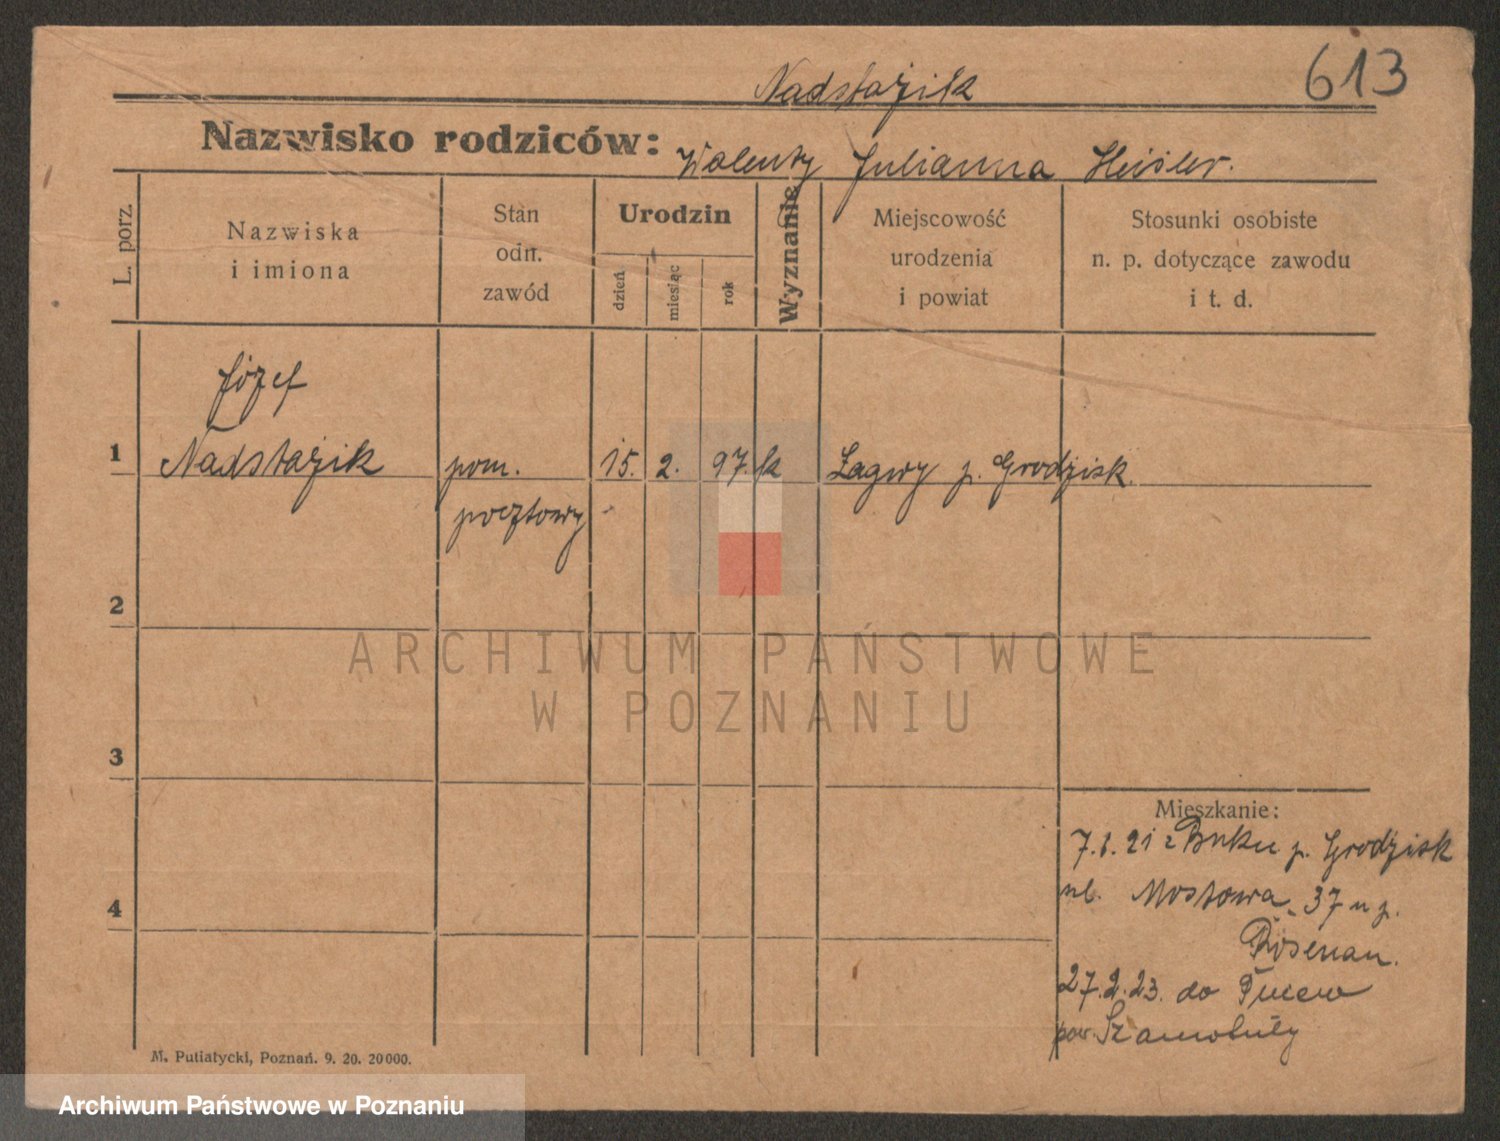 613
Nadstazik
Nazwisko rodziców: Walenty Julianna Heisler.
L. porz.
Nazwiska
i imiona
Stan
odn.
zawód
Urodzin
dzień
miesiąc
rok
Wyznanie
Miejscowość
urodzenia
i powiat
Stosunki osobiste
n. p. dotyczące zawodu
i t. d.
Józef
1 Nadstazik pom. 15. 2. 97. k Łagwy p. Grodzisk.
pocztowy
2
ARCHIWUM PAŃSTWOWE
W POZNANIU
3
Mieszkanie:
7. 21 z Buku p. Grodzisk
ul. Mostowa 37 u p.
Rosenau.
4
27.2.23. do
pow. Szamotuły
M. Putiatycki, Poznań. 9. 20. 20000.
Archiwum Państwowe w Poznaniu